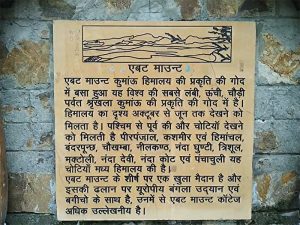 एबट माउन्ट
एबट माउन्ट कुमांऊ हिमालय की प्रकृति की गोद
में बसा हुआ यह विश्व की सबसे लंबी, ऊंची, चौड़ी
पर्वत श्रृंखला कुमांऊ की प्रकृति की गोद में है।
हिमालय का दृश्य अक्टूबर से जून तक देखने को
मिलता है। पश्चिम से पूर्व की और चोटियाँ देखने
को मिलती है पीरपंजाल, कशमीर एवं हिमांचल,
बंदरपूछ, चौखम्बा, नीलकण्ठ, नंदा घुण्टी, त्रिशूल,
मक्टोली, नंदा देवी, नंदा कोट एवं पंचाचुली यह
चोटियाँ मध्य हिमालय की है।
एबट माउन्ट के शीर्ष पर एक खुला मैदान है और
इसकी ढलान पर यूरोपीय बंगला उद्यान एवं
बगीचो के साथ है, उनमें से एबट माउन्ट कॉटेज
अधिक उल्लेखनीय है।